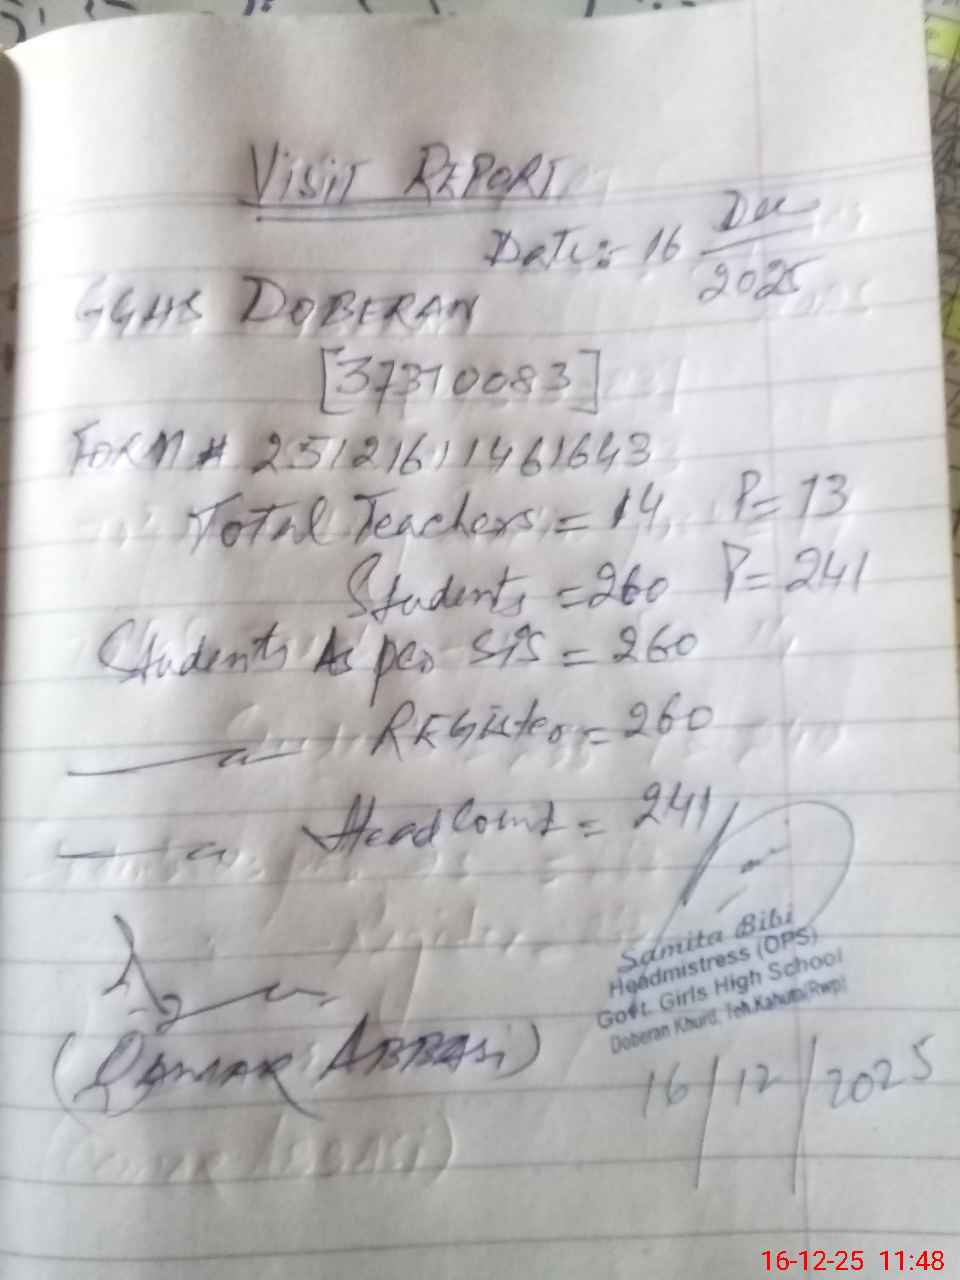 VISIT REPORT
Date:- 16 Dec 2025
GGHS DOBERAN
[37310083]
FORM # 25121611461643
Total Teachers = 14 P = 13
Students = 260 P = 241
Students As per SIS = 260
Register = 260
Head Count = 241
Samita Bibi
Headmistress (OPS)
Govt. Girls High School
Doberan Khurd, Teh. Kahuta (Rwp)
(QAMAR ABBAS)
16/12/2025
16-12-25 11:48